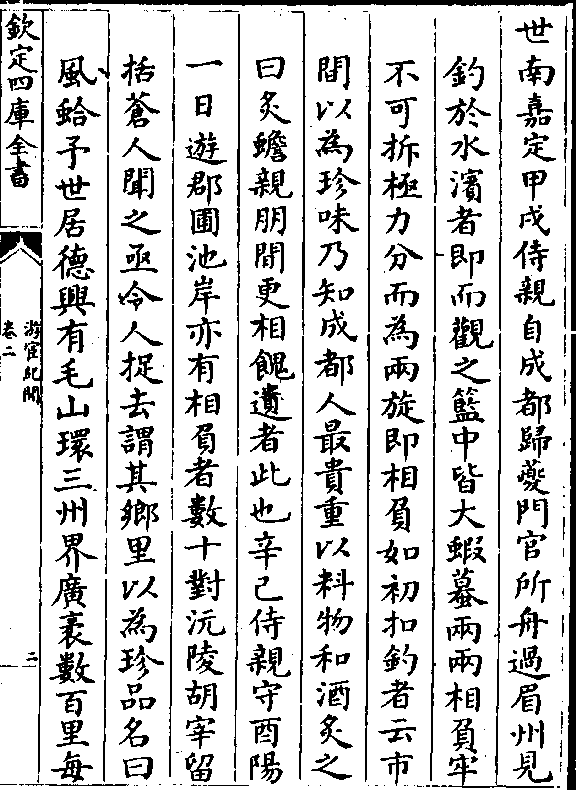 世南嘉定甲戌侍親自成都歸夔門官所舟過眉州見
釣於水濱者即而觀之籃中皆大蝦蟇兩兩相負牢
不可拆極力分而為兩旋即相負如初扣釣者云市
間以為珍味乃知成都人最貴重以料物和酒炙之
曰炙蟾親朋間更相餽遺者此也辛已侍親守酉陽
一日遊郡圃池岸亦有相負者數十對沅陵胡宰留
括蒼人聞之亟令人捉去謂其鄉里以為珍品名曰
風蛤予世居德興有毛山環三州界廣袤數百里每
欽定四庫全書
游宦紀聞
卷二
二